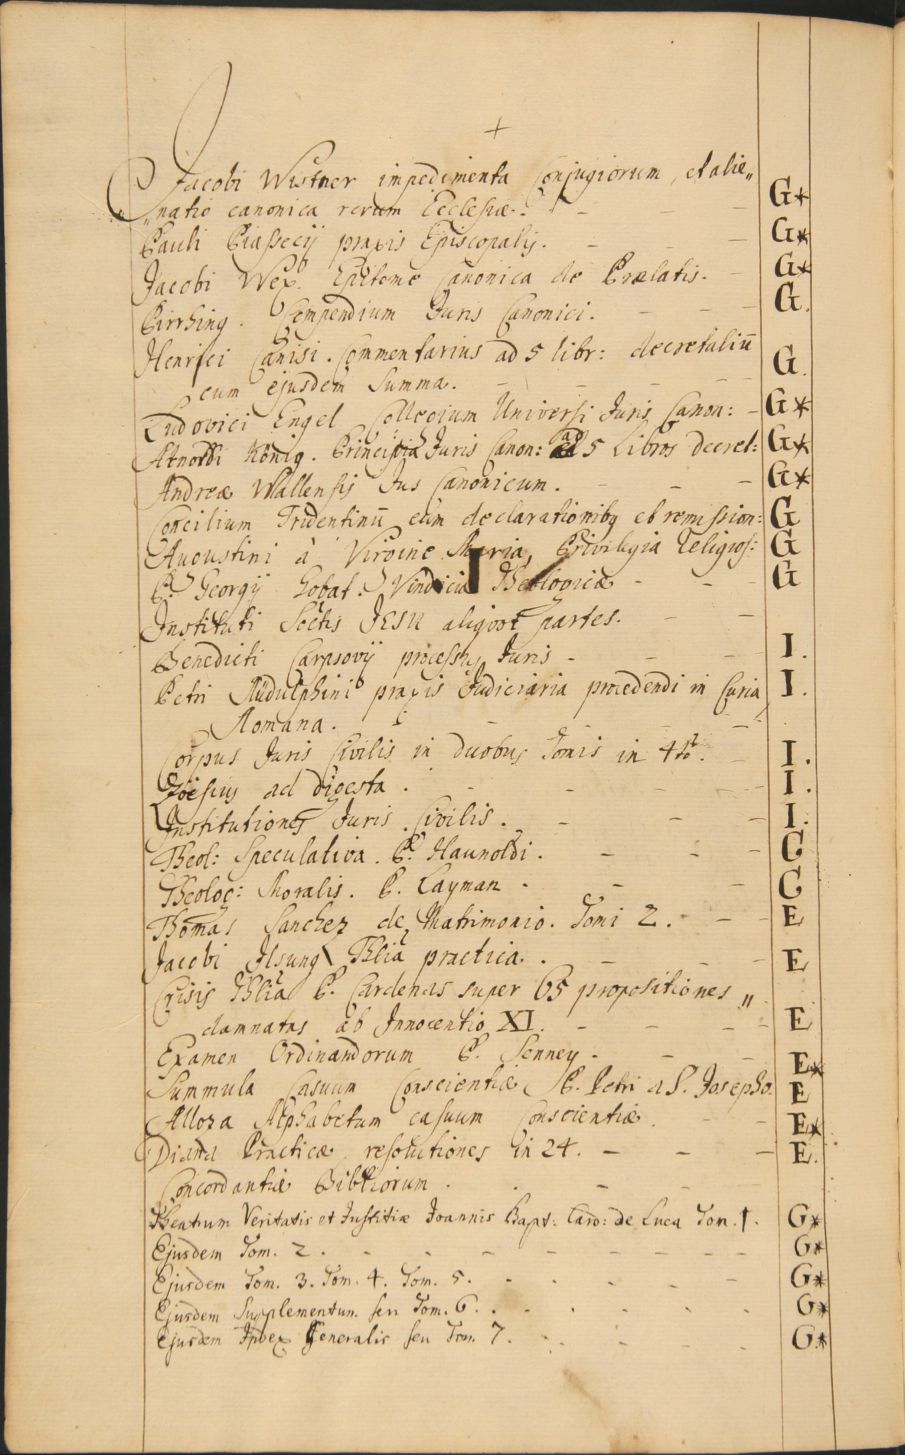 +
Jacobi Wistner impedimenta Conjugiorum, et alie„
„natio canonica rerum Ecclesiæ. - - - - G*
Pauli Piaseciÿ praxis Episcopalis. - - - G*
Jacobi Wex. Epitome Canonica de Prælatis. - G*
Pirrhing. Compendium Juris Canonici. - - - G.
Henrici Canisi. Commentarius ad 5 libr: decretaliū
cum ejusdem Summa. - - - - - G.
Ludovici Engel Collegium Universi Juris Canon: - G*
Arnoldi König. Principia Juris Canon: ad 5 Libros decret: G*
Andreæ Wallensis Jus Canonicum. - - - G*
Concilium Tridentinū cum declarationibq et remission: G
Augustini à Virgine Maria, Privilegia Religios: G
P. Georgÿ Gobat. Vindiciæ - - - G
Instituti Soctis JESU aliquot partes. - -
Benedicti Carpsovÿ processus Juris - - - - I.
Petri Ridulphini praxis Judiciaria procedendi in Curia I.
Romana. - - - - -
Corpus Juris Civilis in duobus Tomis in 4to. - I.
Zoësius ad digesta. - - - I.
Institutiones Juris Civilis. - - - I.
Theol: Speculativa. P. Haunoldi. - - - C
Theolog: Moralis. P. Layman - - - C
Thomas Sanchez de Matrimonio. Tomi 2. - - E
Jacobi Ilsung Thlia practica. . - - - E
Crisis Thlia P. Cardenas super 65 propositiones „
damnatas ab Innocentio XI. - - - - - E
Examen Ordinandorum P. Senney - - - E*
Summula Casuum Conscientiæ P. Petri a S. Josepho. E
Alloza Alphabetum casuum Conscientiæ. - - E*
Diana Practicæ resolutiones in 24. - - - E.
Concordantiæ Bibliorum . . - -
Theatrum Veritatis et Justitiæ Joannis Bapt: Card: de Luca Tom. 1. G*
Ejusdem Tom. 2. - - - - - - - - G*
Ejusdem Tom. 3. Tom. 4. Tom. 5. . - - - - G*
Ejusdem Supplementum seu Tom. 6. . . . . . . G*
Ejusdem Index Generalis seu Tom. 7. . . - - G.*